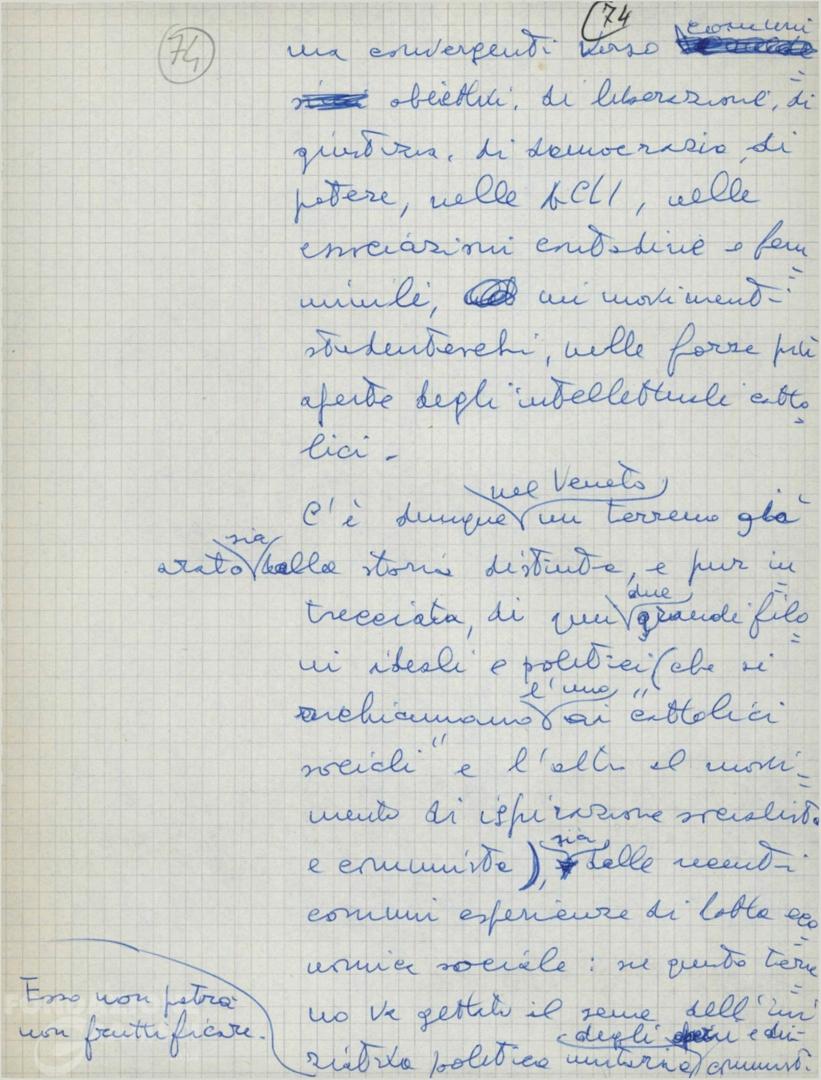 74
74
comuni
ma convergenti verso
obiettivi, di liberazione, di
giustizia, di democrazia, di
potere, nelle ACLI, nelle
associazioni contadine e fem
minili, nei movimenti
studenteschi, nelle forze più
aperte degli intellettuali catto
lici.
nel Veneto
C'è dunque un terreno già
sia
arato dalla storia distinta, e pur in
due
trecciata, di quei grandi filo
ni ideali e politici (che si
l'uno
richiamano ai "cattolici
sociali" e l'altro al movi
mento di ispirazione socialista
sia
e comunista), dalle recenti
comuni esperienze di lotta eco
nomica sociale: su questo terre
no va gettato il seme dell'ini
degli
ziativa politica unitaria comunisti.
Esso non potrà
non fruttificare.